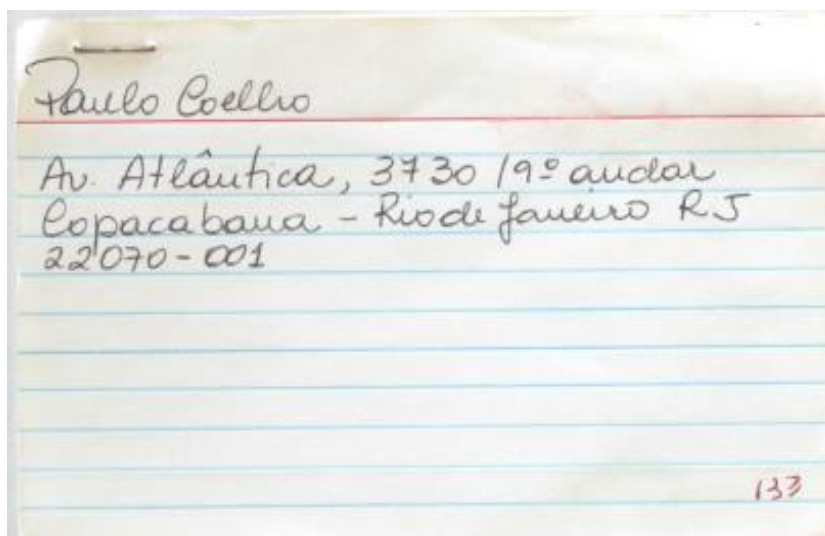 Paulo Coelho
Av. Atlântica, 3730 / 9º andar
Copacabana - Rio de Janeiro RJ
22070-001
133